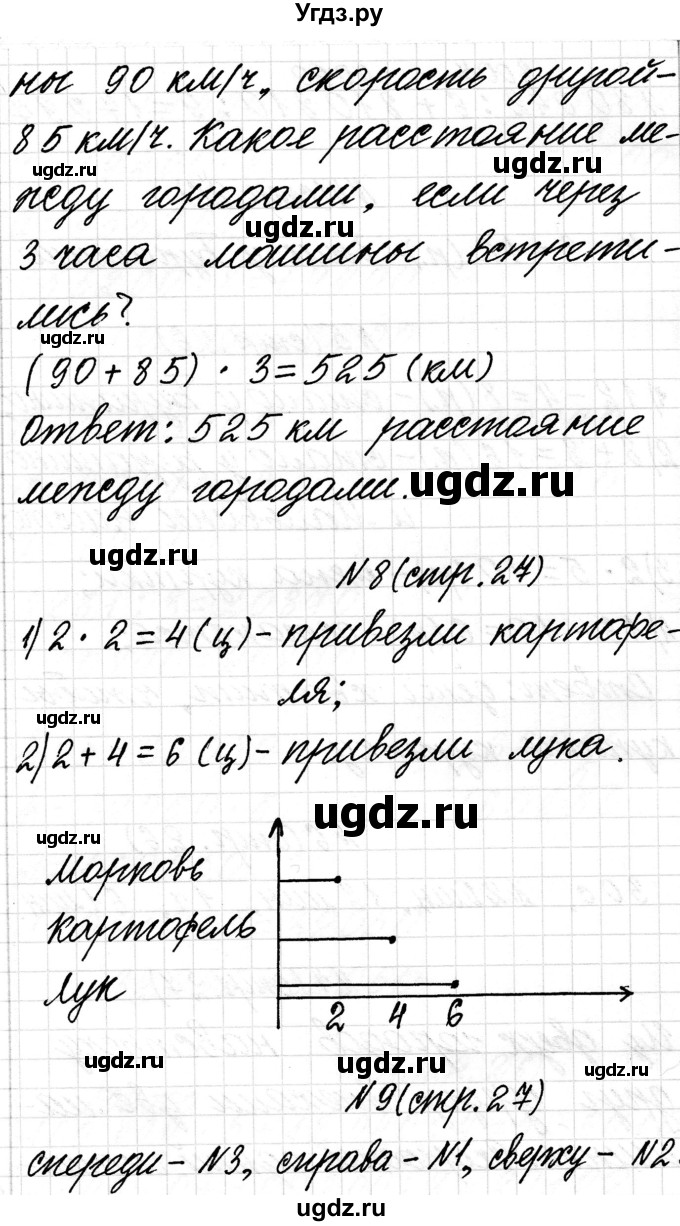 Угдз.ру
ны 90 км/ч, скорость другой-
85 км/ч. Какое расстояние ме-
ugdz.ru ugdz.ru
жду городами, если через
ugdz.ru
3 часа машины встрети-
лись?
ugdz.ru
(90+85) · 3=525 (км)
Ответ: 525 км расстояние
между городами.
ugdz.ru
ugdz.ru
N8(стр.27)
1) 2 · 2 = 4 (ц) - привезли картофе-
ля;
ugdz.ru
2) 2 + 4 = 6 (ц) - привезли лука.
ugdz.ru
ugdz.ru
Морковь
Картофель
Лук
2 4 6
ugdz.ru ugdz.ru ugdz.ru
N9(стр.27)
спереди - N3, справа - N1, сверху - N2.
ugdz.ru